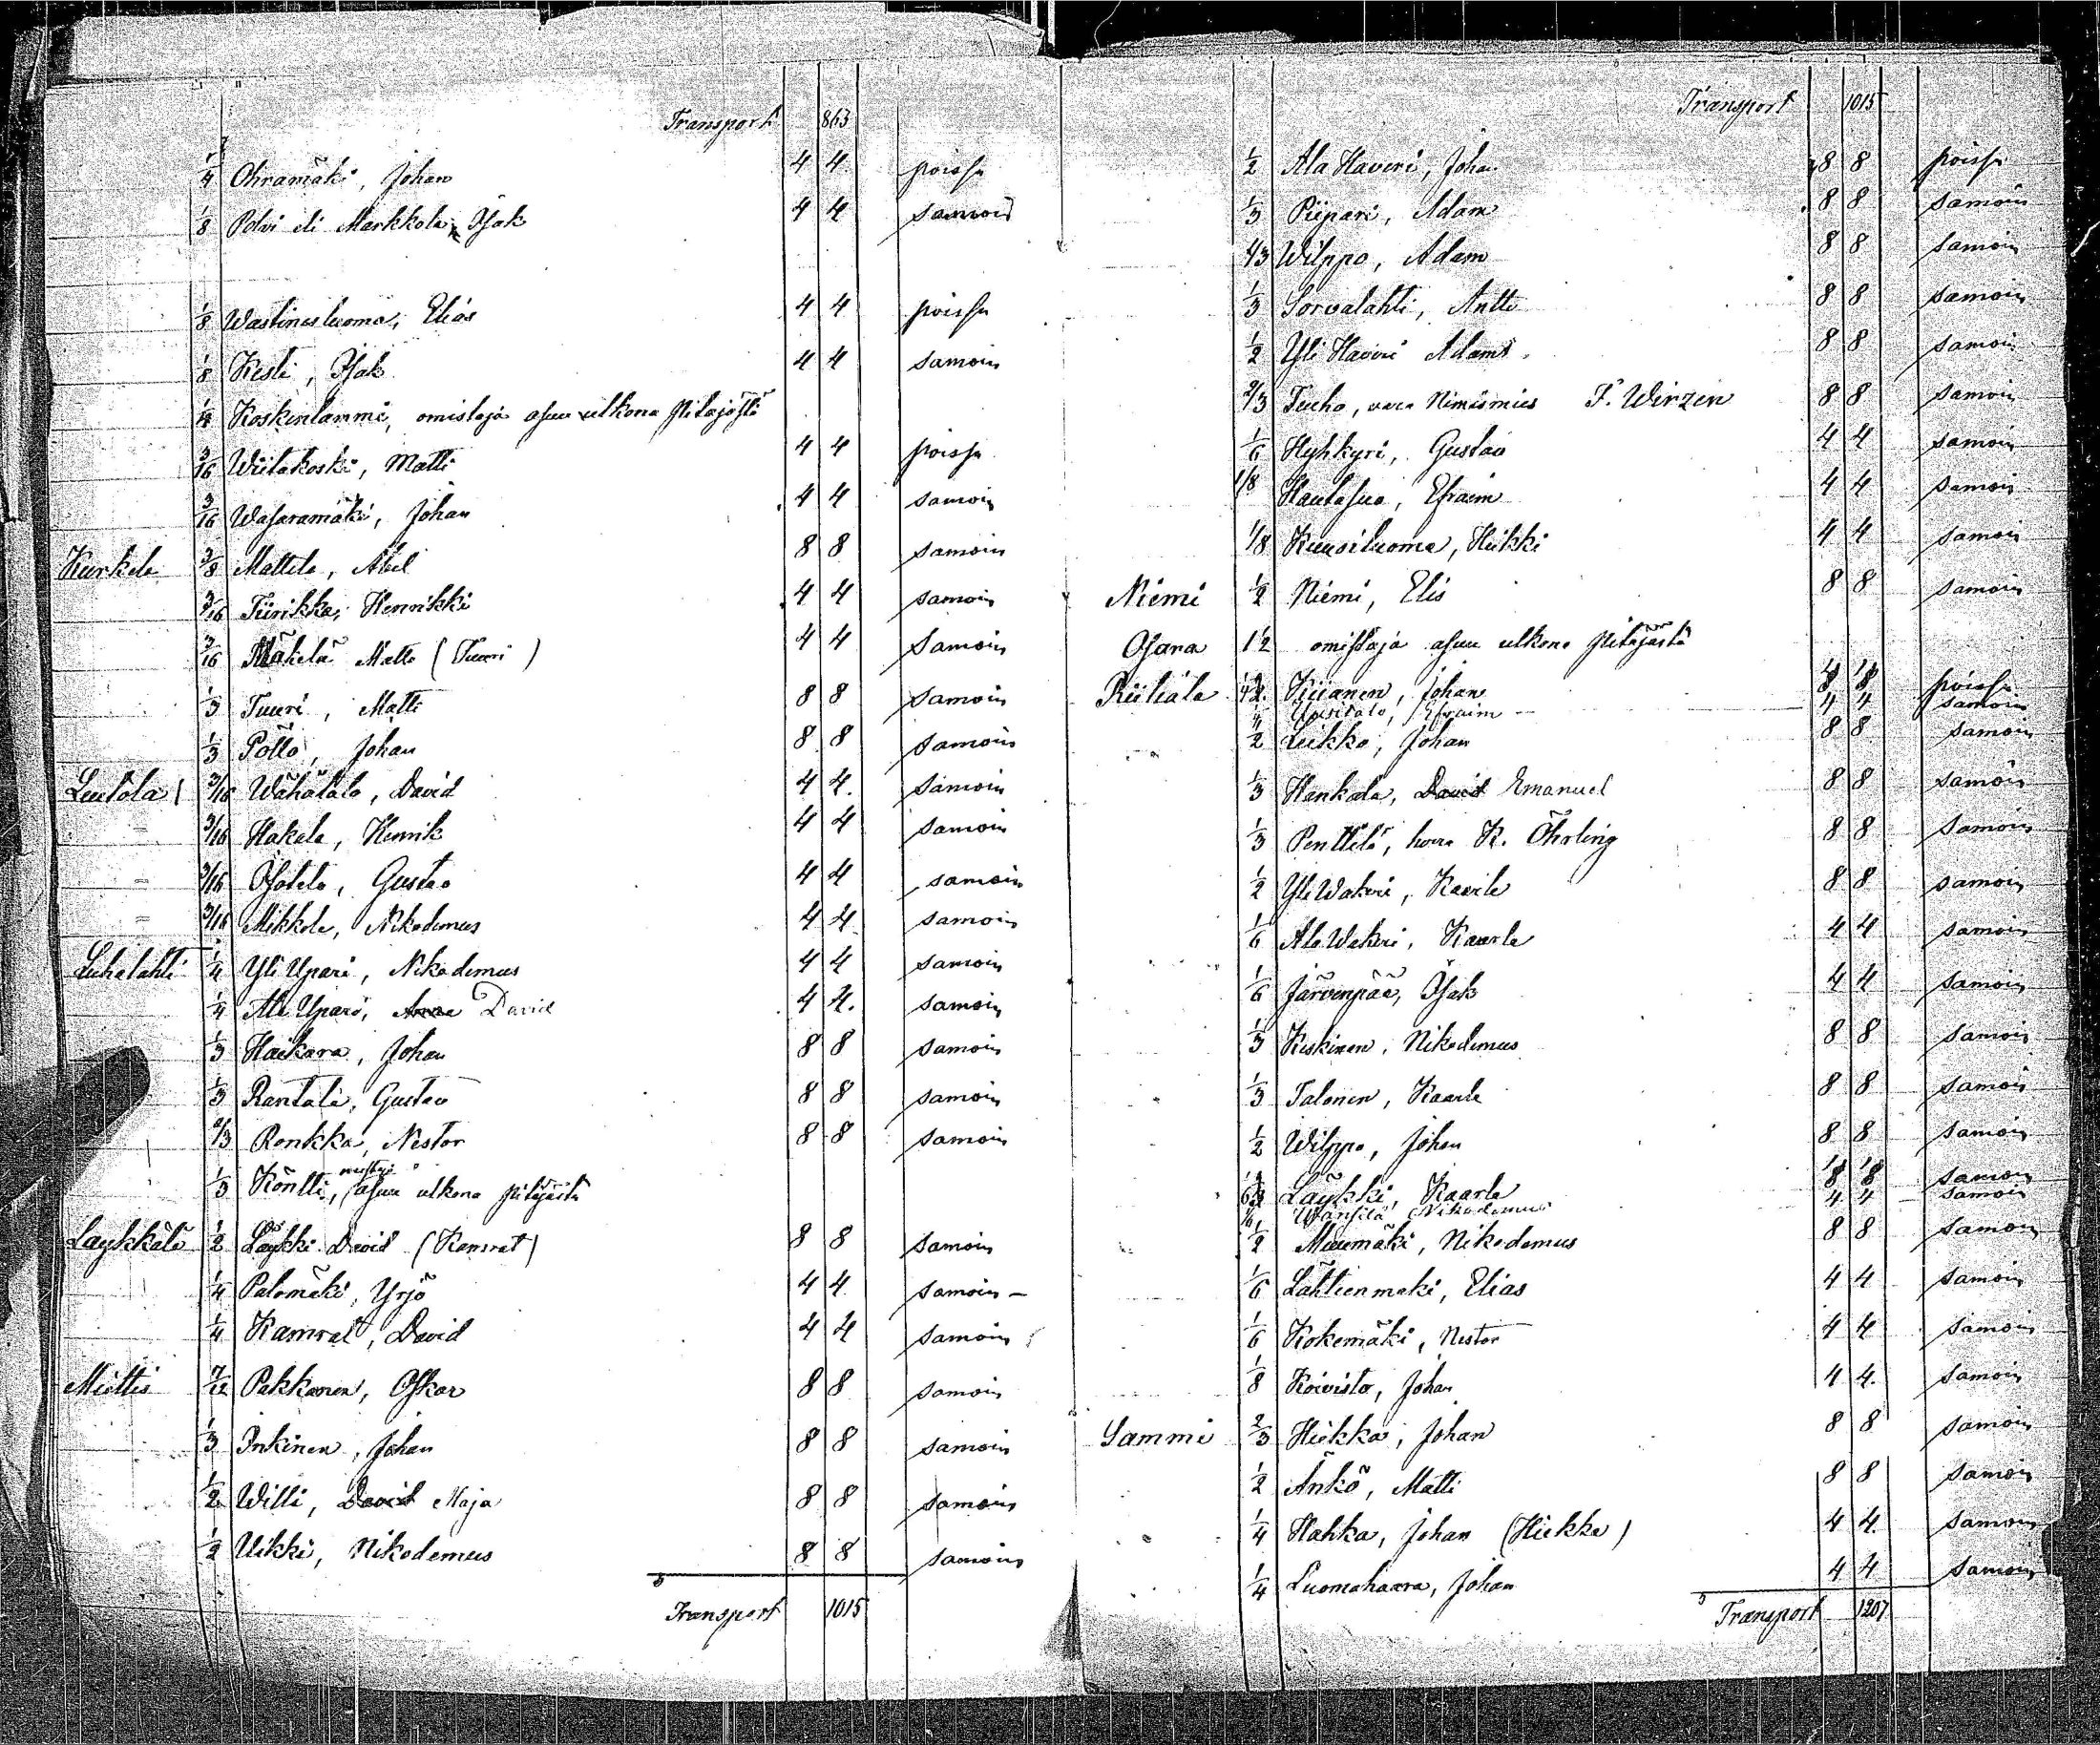 Transport 863
1/4 Ohramäki, Johan 4 4 poissa
1/8 Polvi eli Markkola, Isak 4 4 samoin
1/8 Wastinesluoma, Elias 4 4 poissa
1/8 Kesti, Isak 4 4 samoin
1/4 Koskenlammi, omistaja asuu ulkona pitäjästä
3/16 Wiitakoski, Matti 4 4 poissa
3/16 Wasaramäki, Johan 4 4 samoin
Kurkela 3/8 Mattila, Abel 8 8 samoin
3/16 Tiirikka, Henrikki 4 4 samoin
3/16 Mäkelä Matti (Tuuri) 4 4 samoin
1/3 Tuuri, Matti 8 8 samoin
1/3 Pöllö, Johan 8 8 samoin
Leutola 3/16 Wähätalo, David 4 4 samoin
" 3/16 Hakala, Henrik 4 4 samoin
" 3/16 Isotalo, Gustav 4 4 samoin
" 3/16 Mikkola, Nikodemus 4 4 samoin
Luhalahti 1/4 Yli Upari, Nikodemus 4 4 samoin
1/4 Ala Upari, Anna David 4 4 samoin
1/3 Haikara, Johan 8 8 samoin
1/3 Rantala, Gustav 8 8 samoin
2/3 Ronkka, Nestor 8 8 samoin
1/3 Köntti, asuu ulkona pitäjästä
Läykkälä 1/2 Läykki David (Kamrat) 8 8 samoin
1/4 Palomäki, Yrjö 4 4 samoin
1/4 Kamrat, David 4 4 samoin
Miettis 7/12 Pakkanen, Oskar 8 8 samoin
1/3 Inkinen, Johan 8 8 samoin
1/2 Willi, David Maja 8 8 samoin
1/2 Uikki, Nikodemus 8 8 samoin
Transport 1015
Transport 1015
1/2 Ala Haveri, Johan 8 8 poissa
1/3 Piipari, Adam 8 8 samoin
1/3 Wilppo, Adam 8 8 samoin
1/3 Sorvalahti, Antto 8 8 samoin
1/2 Yli Haveri Adam 8 8 samoin
2/3 Tuuha, vara Nimismies F. Wirzen 8 8 samoin
1/6 Hyhkyri, Gustav 4 4 samoin
1/8 Hautasuo, Efraim 4 4 samoin
1/8 Kuusiluoma, Heikki 4 4 samoin
Niemi 1/2 Niemi, Elis 8 8 samoin
Osara 1 1/2 omistaja asuu ulkona pitäjästä
Riitiala Kiianen, Johan 4 4 poissa
1/4 Uusitalo, Efraim 4 4 samoin
1/2 Leikko, Johan 8 8 samoin
1/3 Hankala, David Emanuel 8 8 samoin
1/3 Penttilä, herra K. Öhrling 8 8 samoin
1/2 Yli Wakeri, Kaarle 8 8 samoin
1/6 Ala Wakeri, Kaarle 4 4 samoin
1/6 Järvenpää, Isak 4 4 samoin
1/3 Keskinen, Nikodemus 8 8 samoin
1/3 Talonen, Kaarle 8 8 samoin
1/2 Wilppo, Johan 8 8 samoin
1/6 Läykki, Kaarle 4 4 samoin
1/6 Wänsilä Nikodemus 4 4 samoin
1/2 Muumäki, Nikodemus 8 8 samoin
1/6 Lähteenmäki, Elias 4 4 samoin
1/6 Kokemäki, Nestor 4 4 samoin
1/8 Koivisto, Johan 4 4 samoin
Sammi 2/3 Hiekka, Johan 8 8 samoin
1/2 Änkö, Matti 8 8 samoin
1/4 Hahka, Johan (Hiekka) 4 4 samoin
1/4 Luomahaara, Johan 4 4 samoin
Transport 1207